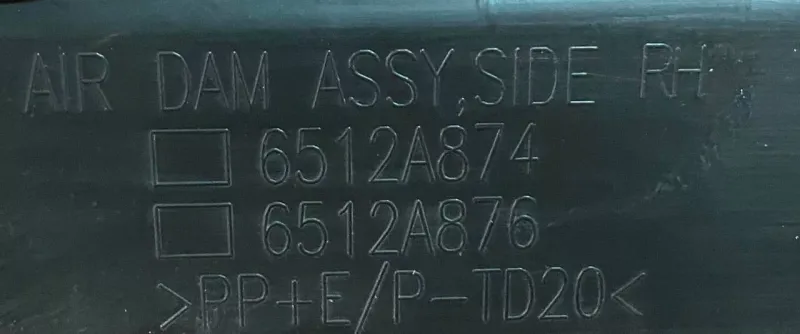 AIR DAM ASSY,SIDE RH
6512A874
6512A876
>PP+E/P-TD20<